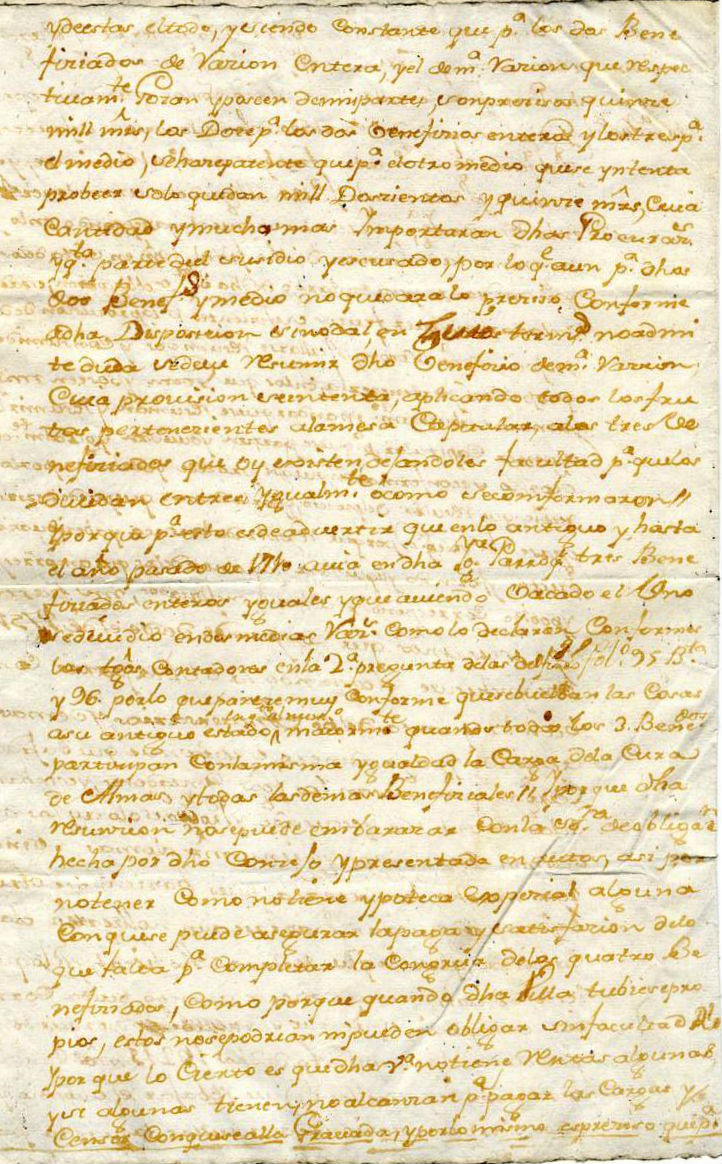 y de estas, el todo, y siendo Constante que pª los dos Bene
firiados de Rarion Entera, y el de mª Rarion que respec
tivamte Goran y poseen de mi parte, son presisos quinre
mill mrs, los Dore pª los dos Benefirios enteros y los tres pª
el medio, se hare patente qui pª el otro medio que se yntenta
probeer solo quedan mill Dosrientos y quinre mrs, Cuia
Cantidad y mucho mas Importaran dhas Procurar.
y qta parte del susidio y escusado, por lo q aun pª dhos
dos Benefos y medio no quedara lo preriso Conforme
a dha Disposicion sinodal, en terms no admi
te duda se deve resumir dho Benefirio de mª Rarion
Cuia provision se intenta, aplicando todos los fru
tos pertenerientes a la mesa Capitular, a los tres Be
nefiriados que oy existen dejandoles facultad pª que los
dividan entre si ygualmte o como se comformaron//
Y porque pª esto es de advertir que en lo antiguo y hasta
el año pasado de 1710 avia en dha Yga Parroql tres Bene
firiados enteros yguales y que aviendo Vacado el Uno
se dividio en dos medias Rar. Como lo declaran Conformes
los tgos Contadores en la 2ª pregunta de las de folº 95 Bta
y 96. por lo que parere muy Conforme que se buelban las Cosas
a su antiguo estado, maiormte quando todos los 3. Benedos
partiripan Con la misma ygualdad la Carga de la Cura
de Almas y todas las demas Benefiriales // Y porque dha
resunrion no se puede embararar Con la esra de obligar
hecha por dho Conrejo y presentada en autos, asi por
no tener Como no tiene ypoteca esperial alguna
Con que se puede asegurar la paga y satisfarion de lo
que falta pª Completar la Congrua de los quatro Be
nefiriados, Como porque quando dha Villa tubiese pro
pios, estos no se podrian ni pueden obligar sin facultad Rl
y porque lo Cierto es que dha Vª no tiene rentas algunas
y si algunas tiene, no alcanzan pª pagar las Cargas y
Censos Con que se alla Gravada, y por lo mismo es preriso qui pª